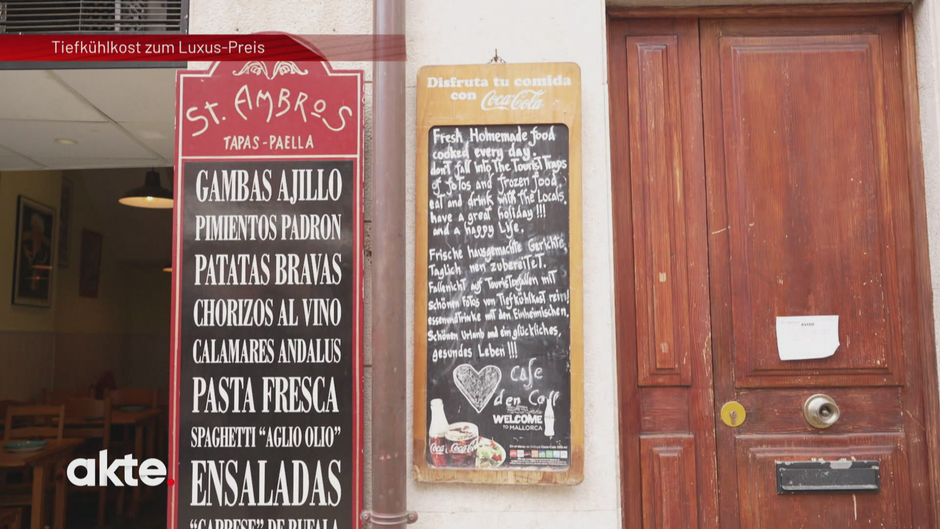 Tiefkühlkost zum Luxus-Preis
St. AMBROS
TAPAS-PAELLA
GAMBAS AJILLO
PIMIENTOS PADRON
PATATAS BRAVAS
CHORIZOS AL VINO
CALAMARES ANDALUS
PASTA FRESCA
SPAGHETTI “AGLIO OLIO”
ENSALADAS
“CAPRESE” DE BUFALA
Disfruta tu comida
con Coca-Cola
Fresh Homemade food
cooked every day.
don't fall into the Tourist Traps
of fotos and frozen food,
eat and drink with the Locals,
have a great holiday !!!
and a happy Life.
Frische hausgemachte Gerichte,
Täglich neu zubereitet.
Fallen nicht auf Touristenfallen mit
Schönen Fotos von Tiefkühlkost rein!
essen und Trinke mit den Einheimischen.
Schönen Urlaub und ein glückliches,
gesundes Leben !!!
Cafe
den Coll
WELCOME
TO MALLORCA
Coca-Cola
akte.